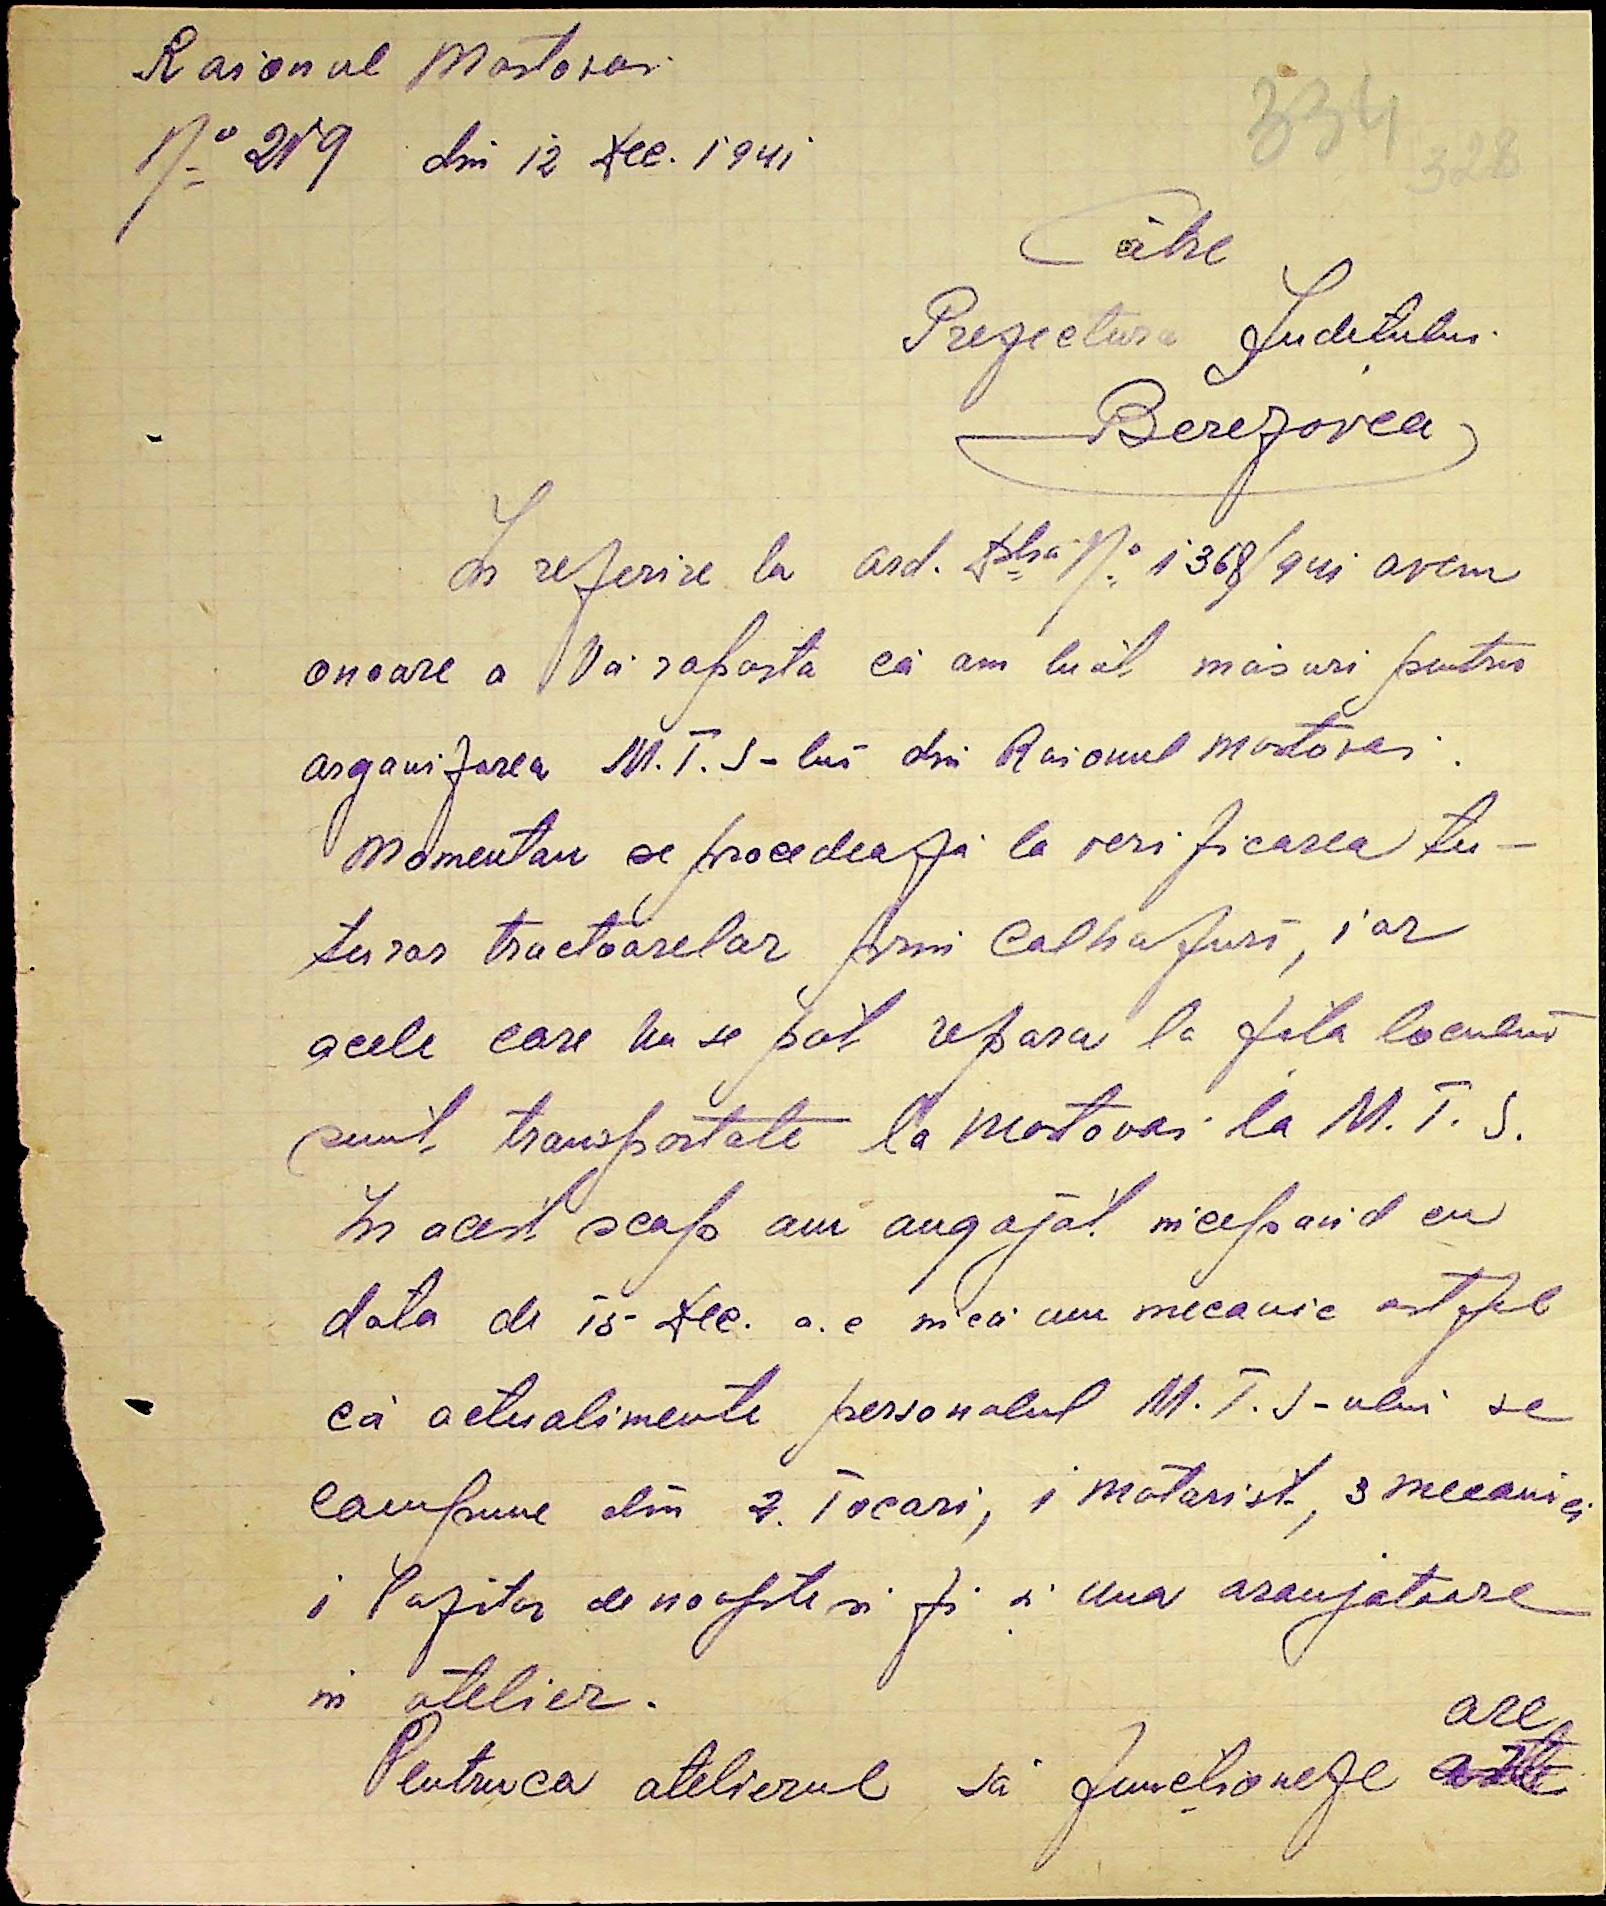 Raionul Mostovoi
No 219 din 12 Dec. 1941
334
328
Către
Prefectura Județului
Berezovca
In referire la ord. Dvs. No 1368/941 avem
onoare a Vă raporta că am luat măsuri pentru
organizarea M.T.S-lui din Raionul Mostovoi.
Momentan se procedează la verificarea tu-
turor tractoarelor prin Colhozuri, iar
acele care nu se pot repara la fața locului
sunt transportate la Mostovoi la M.T.S.
In acest scop am angajat incepand cu
data de 15 Dec. a.c incă un mecanic astfel
că actualimente personalul M.T.S-ului se
compune din 2. Tocari, 1 motorist, 3 mecanici
1 Pazitor de noapte si zi si una aranjatoare
in atelier.
are
Pentruca atelierul să funcționeze